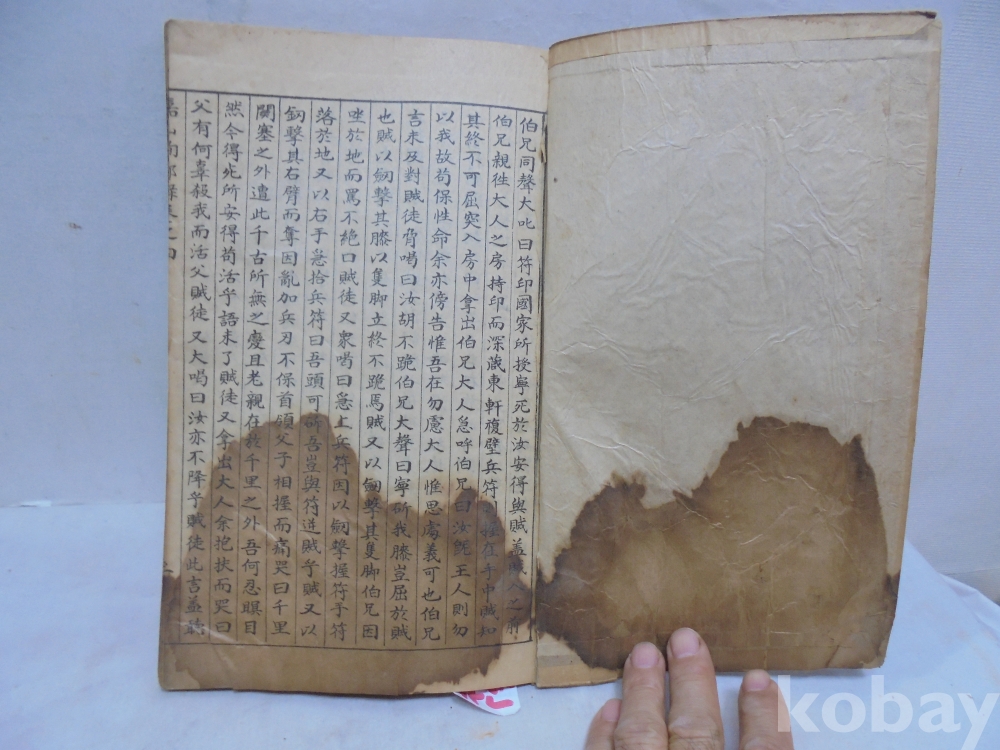 伯兄同聲大叱曰符印國家所授寧死於汝安得與賊盖賊人之前
伯兄親徃大人之房持印而深藏東軒複壁兵符則握在手中賊知
其終不可屈突入房中拿出伯兄大人急呼伯兄曰汝旣王人則勿
以我故苟保性命余亦傍告惟吾在勿慮大人惟思處義可也伯兄
言未及對賊徒脅喝曰汝胡不跪伯兄大聲曰寧斫我膝豈屈於賊
也賊以釰擊其膝以隻脚立終不跪馬賊又以釰擊其隻脚伯兄因
坐於地而罵不絶口賊徒又衆喝曰急上兵符因以釰擊握符手符
落於地又以右手急拾兵符曰吾頭可斫吾豈與符逆賊乎賊又以
釰擊其右臂而奪因亂加兵刃不保首領父子相握而痛哭曰千里
關塞之外遭此千古所無之變且老親在於千里之外吾何忍瞑目
然今得死所安得苟活乎語未了賊徒又拿出大人余抱扶而哭曰
父有何辜殺我而活父賊徒又大喝曰汝亦不降乎賊徒此言盖
之四
kobay